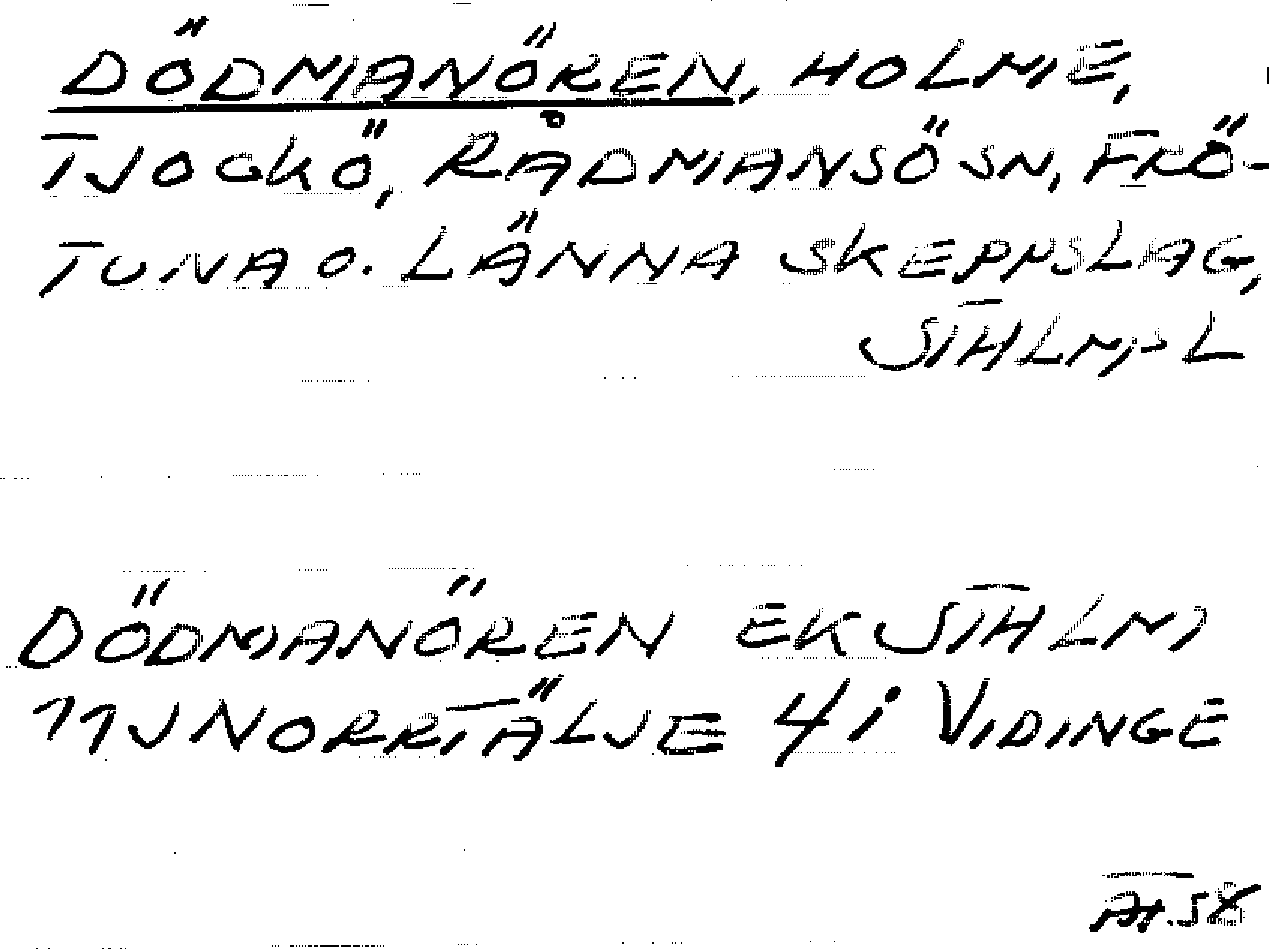 DÖDMANÖREN, HOLME,
TJOCKÖ, RÅDMANSÖ SN, FRÖ-
TUNA O. LÄNNA SKEPPSLAG,
STHLMS L
DÖDMANÖREN EK STHLM
11J NORRTÄLJE 4 i VIDINGE